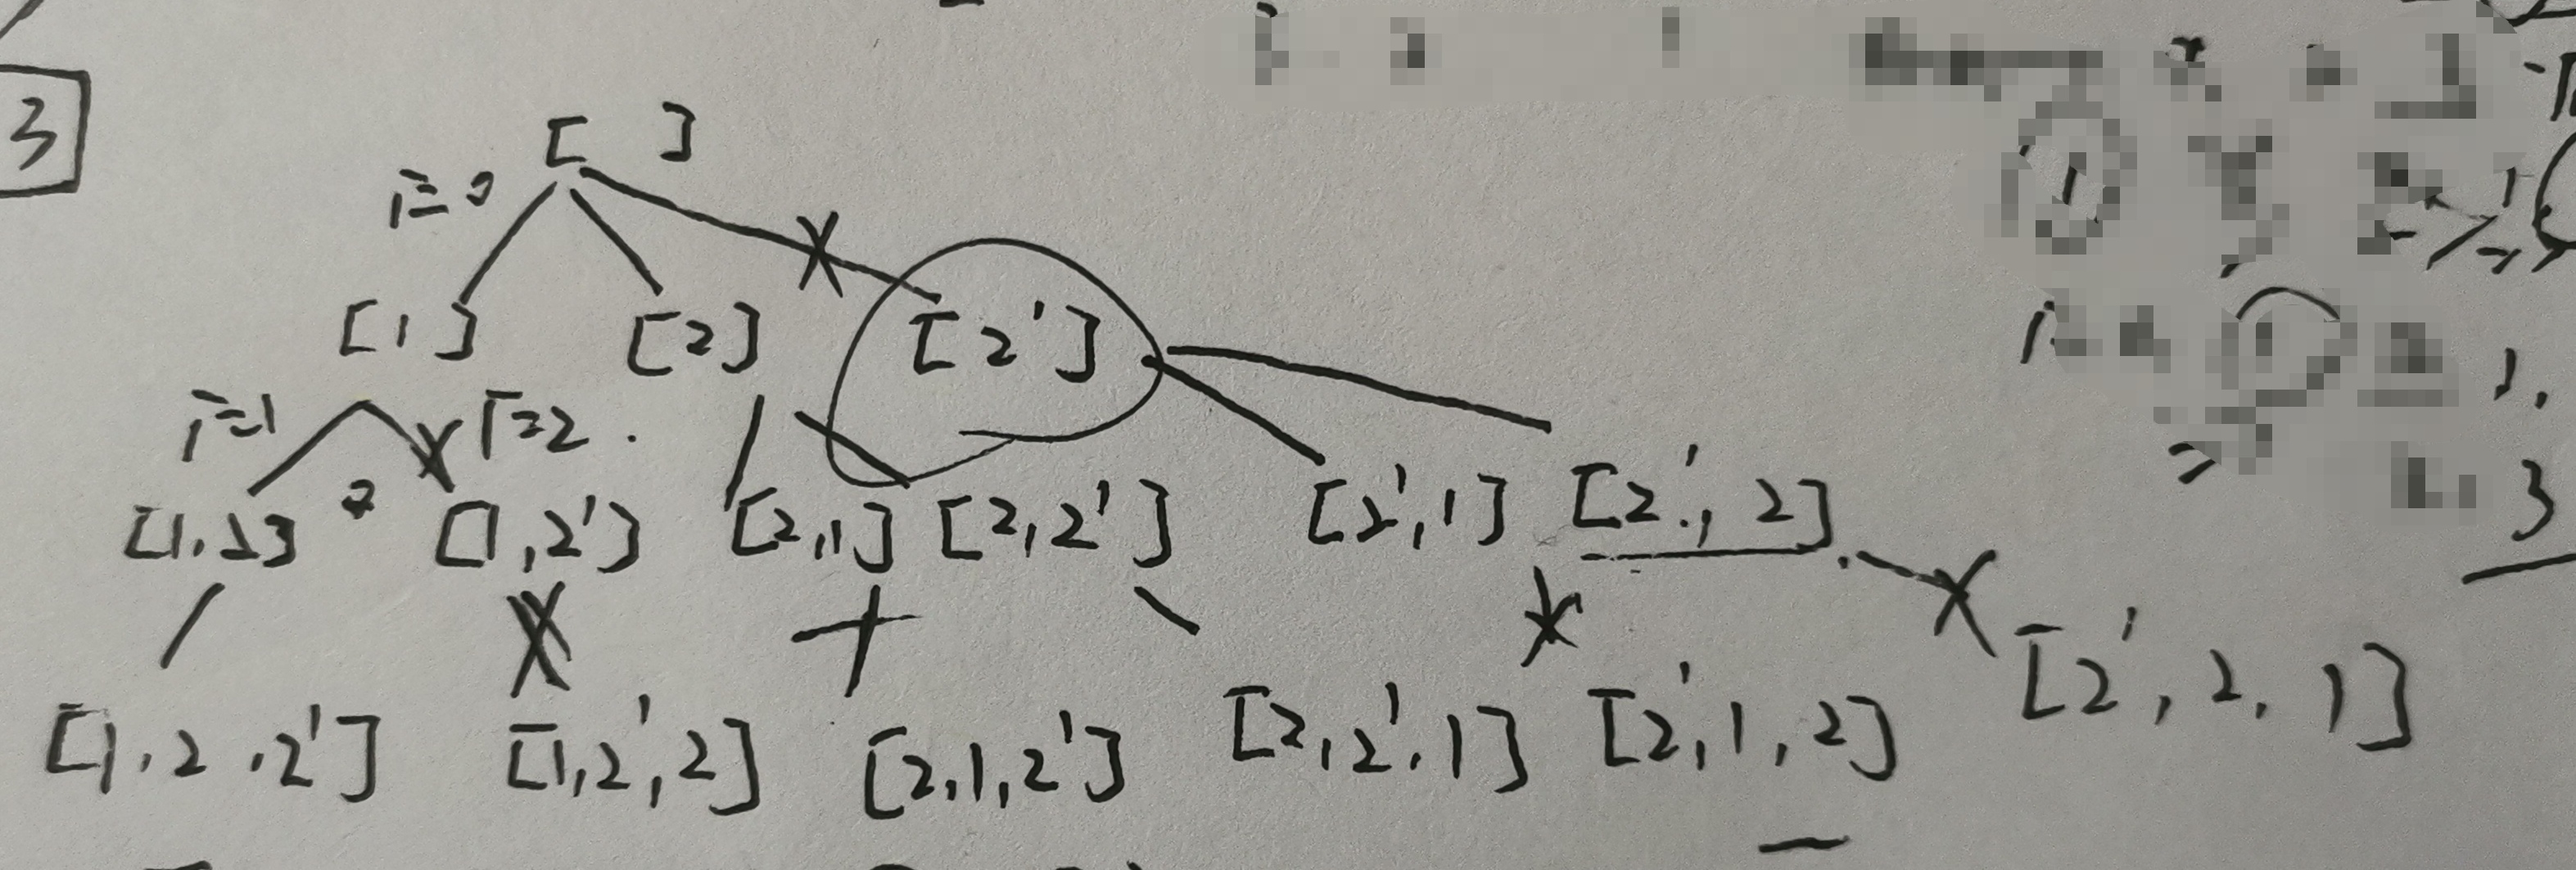 3
[ ]
i=0
[1] [2] [2']
i=1 i=2
[1,2] [1,2'] [2,1] [2,2'] [2',1] [2',2]
[1,2,2'] [1,2',2] [2,1,2'] [2,2',1] [2',1,2] [2',2,1]
3